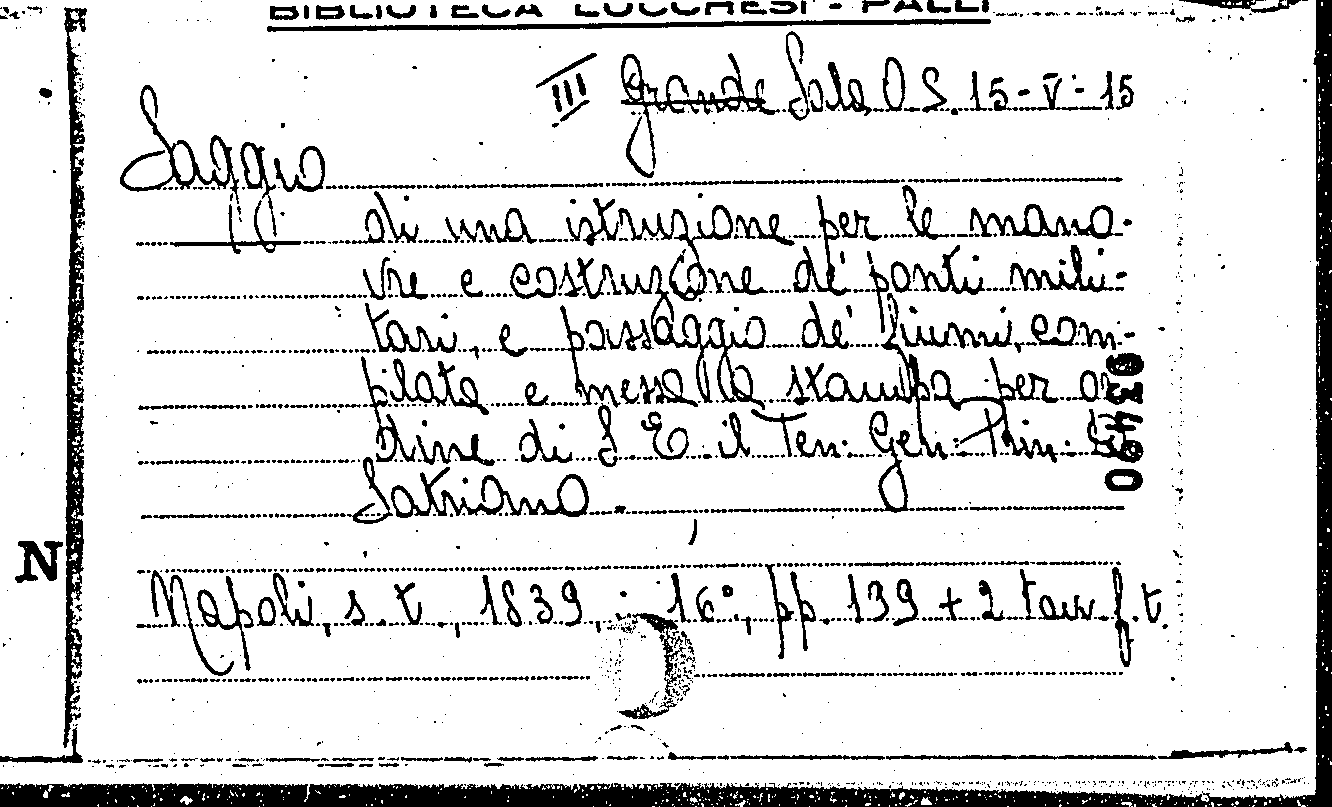 BIBLIOTECA LUCCHESI - PALLI
III Grande Sala O S. 15-V-15
Saggio
di una istruzione per le mano-
vre e costruzione de' ponti mili-
tari, e passaggio de' fiumi, com-
pilata e messa alla stampa per or
dine di S. E. il Ten: Gen: Prin: di
Satriano.
03490
N
Napoli, s. t., 1839, ; 16°, pp. 139 + 2 tav. f. t.